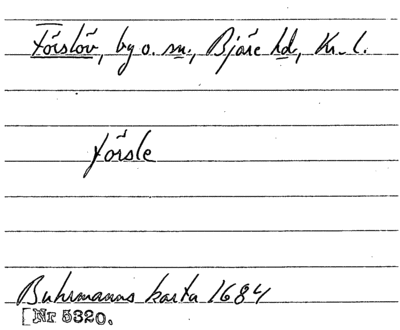 Förslöv, by o. sn., Bjäre hd, Kr. l.
Försle
Buhrmanns karta 1684
[Nr 5320.